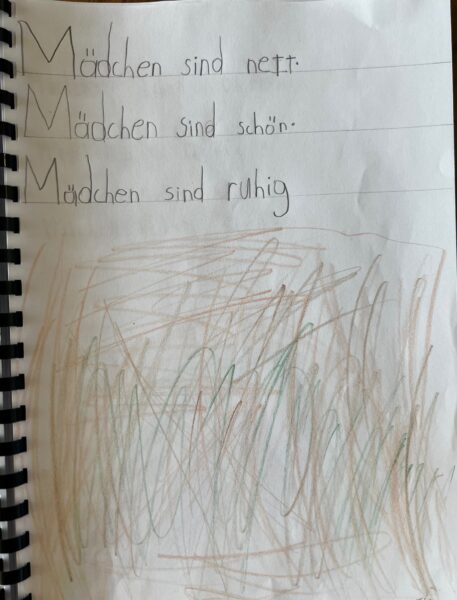 Mädchen sind nett.
Mädchen sind schön.
Mädchen sind ruhig